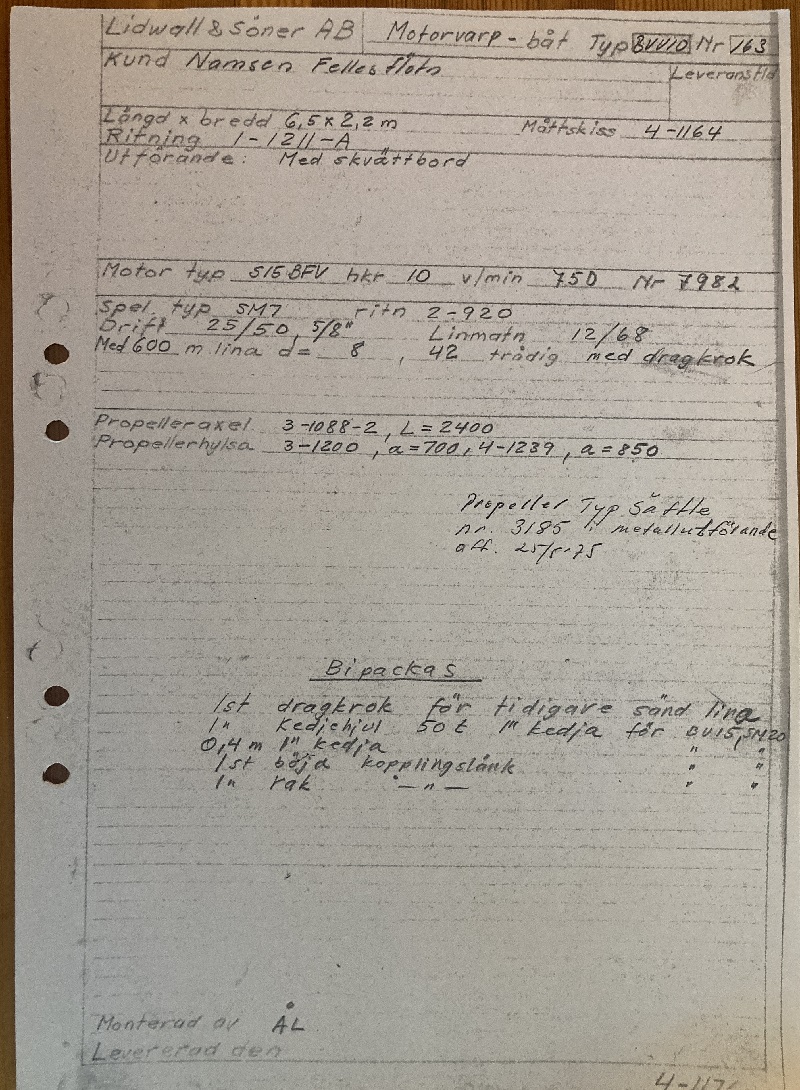 Lidwall & Söner AB Motorvarp-båt Typ BVV10 Nr 163
Kund Namsen Fellesfløtn Leveranstid
Längd x bredd 6,5 x 2,2 m Måttskiss 4-1164
Ritning 1-1211-A
Utförande: Med skvättbord
Motor typ S15BFV hkr 10 v/min 750 Nr 7982
Spel. typ SM7 ritn 2-920
Drift 25/50, 5/8" Linmatn 12/68
Med 600 m lina d= 8, 42 trådig med dragkrok
Propelleraxel 3-1088-2, L=2400
Propellerhylsa 3-1200, a=700, 4-1239, a=850
Propeller Typ Säffle
nr. 3185 i metallutförande
off. 25/5-75
Bipackas
1st dragkrok för tidigare sänd lina
1" Kedjehjul 50t 1" kedja för BV15, SM20
0,4 m 1" kedja " "
1st böjd kopplingslänk " "
1" rak -"- " "
Monterad av ÅL
Levererad den